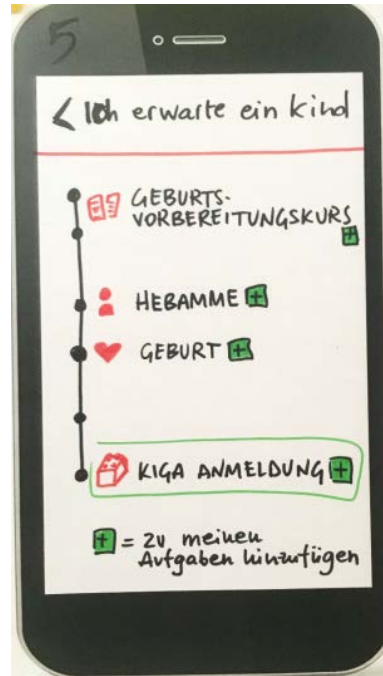 5
< Ich erwarte ein kind
GEBURTS-
VORBEREITUNGSKURS
+
HEBAMME +
GEBURT +
KIGA ANMELDUNG +
+ = zu meinen
Aufgaben hinzufügen